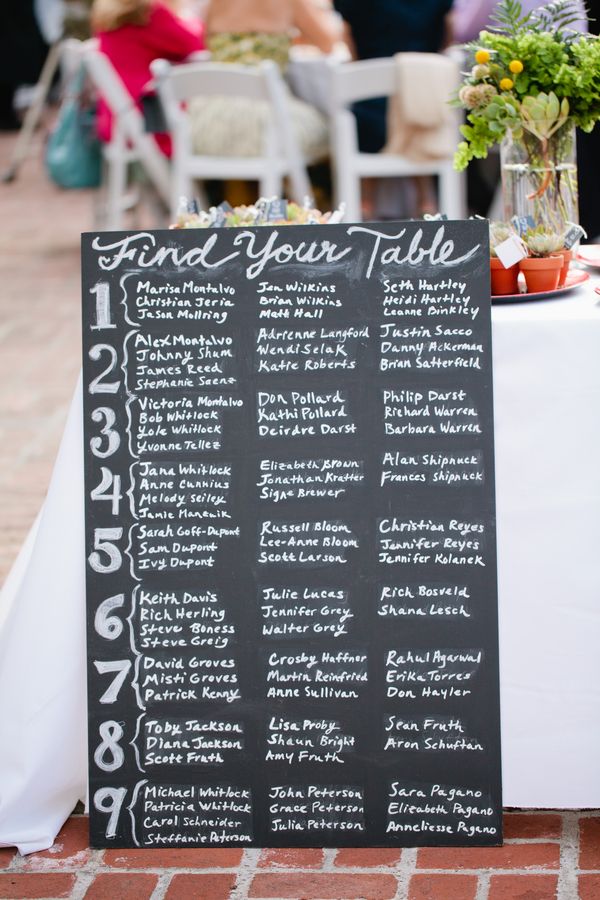 Find Your Table
1 Marisa Montalvo Jen Wilkins Seth Hartley
Christian Jeria Brian Wilkins Heidi Hartley
Jason Mollring Matt Hall Leanne Binkley
2 Alex Montalvo Adrienne Langford Justin Sacco
Johnny Shum Wendi Selak Danny Ackerman
James Reed Katie Roberts Brian Satterfield
Stephanie Saenz
3 Victoria Montalvo Don Pollard Philip Darst
Bob Whitlock Kathi Pollard Richard Warren
Yole Whitlock Deirdre Darst Barbara Warren
Yvonne Tellez
4 Jana Whitlock Elizabeth Brown Alan Shipnuck
Anne Cunnius Jonathan Kratter Frances Shipnuck
Melody Seiley Signe Brewer
Jamie
5 Sarah Goff-Dupont Russell Bloom Christian Reyes
Sam Dupont Lee-Anne Bloom Jennifer Reyes
Ivy Dupont Scott Larson Jennifer Kolanek
6 Keith Davis Julie Lucas Rich Bosveld
Rich Herling Jennifer Grey Shana Lesch
Steve Boness Walter Grey
Steve Greig
7 David Groves Crosby Haffner Rahul Agarwal
Misti Groves Martin Reinfried Erika Torres
Patrick Kenny Anne Sullivan Don Hayler
8 Toby Jackson Lisa Proby Sean Fruth
Diana Jackson Shaun Bright Aron Schuftan
Scott Fruth Amy Fruth
9 Michael Whitlock John Peterson Sara Pagano
Patricia Whitlock Grace Peterson Elizabeth Pagano
Carol Schneider Julia Peterson Anneliesse Pagano
Steffanie Peterson